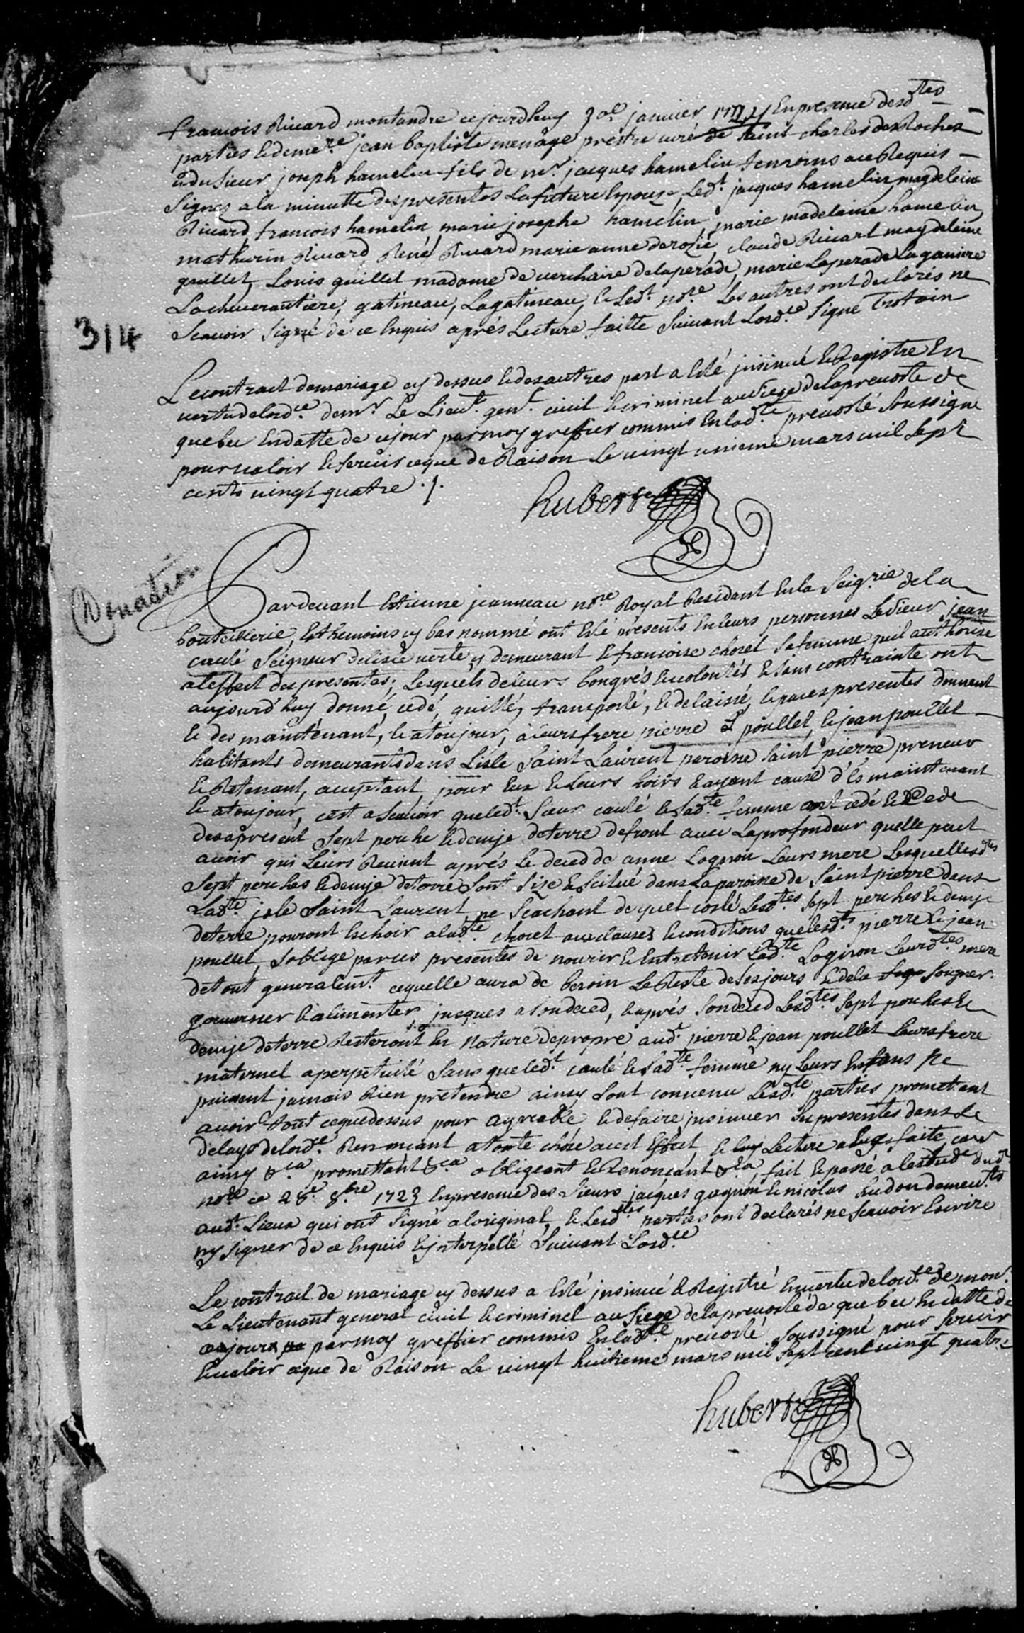 francois Ricard montandre cejourdhuy 3oe janvier 1724 En presence desdtes
parties le demere jean baptiste menage prestre curé de saint charles des Roches
& du sieur joseph hamelin fils de mr jacques hamelin temoins ace Requis
signes a la minutte des presentes La future Epouse, Ledt jacques hamelin, magdelaine
Ricard, francois hamelin, marie josephe hamelin, marie madelaine hamelin
mathurin Rivard, René Rivard marie anne derozié, claude Rivart magdelaine
guillet, Louis guillet madame de verchaire delaperade, marie Laperade Laganiere
Lacheverautiere, gatineau, Lagatineau, & Ledt nore Les autres ont declarés ne
scavoir signé de ce Enquis aprés Lecture faitte suivant Lorde signé trotain
314
Le contract de mariage cy dessus & desautres part a Esté jnsinué & Registre En
vertu delorde. demr. Le Lieut. gent. civil & criminel au siege de la prevosté de
quebec En datte de cejour par moy greffier commis En ladte prevosté soussigné
pour valoir & servir ceque de Raison Le vingt unieme mars mil sept
cents vingt quatre ./.
huberst
Donation
Pardevant Estienne jeanneau nore Royal Resident En la Seigrie de la
bouteillerie, & temoins cy bas nommé ont Esté présents En leurs personnes Le sieur jean
caulé Seigneur de lisle verte y demeurant & francoise choret sa femme quil authorise
a leffect des presentes; Lesquels de leurs bongrés & volontés & sans contrainte ont
aujourdhuy donné, cedé, quitté, transporté, & delaissé, & par ces presentes donnent
& des maintenant, & atoujour, a leurs frere pierre poullet, & jean poullet
habitants demeurants dans Lisle Saint Laurent paroisse saint pierre preneur
& Retenant, acceptant, pour Eux & leurs hoirs & ayant cause d'es maintenant
& atoujour, cest a scavoir que ledt. Sieur caulé & sadte femme ont cédé & cede
desapresent Sept perche & demije de terre de front avec La profondeur quelle peut
avoir qui Leurs Revient aprés Le deced de anne Lognon Leurs mere Lesquellesdtes
Sept perches & demije de terre sont Size & Scitué dans La paroisse de Saint pierre dans
Ladte jsle Saint Laurent, ne scachant de quel costé Lesdtes Sept perches & demije
de terre pouront Echoir a ladte choret aux clauses & conditions que lesdts pierre & jean
poullet, s'oblige par ces presentes de nourir & Entretenir Ladte Lognon Leurdtes mere
de tout generalemt. cequelle aura de besoin Le Reste de ses jours & de la soigner.
gouverner & alimenter jusques a son deced, & aprés son deced Lesdtes Sept perches &
demije de terre Resteront En Nature de propre audt. pierre & jean poullet Leurs frere
maternel a perpetuité sans que ledt caulé & sadte femme ny Leurs Enfans ne
puissent jamais Rien pretendre ainsy sont convenu Lesdte parties promettant
avoir tout ceque dessus pour agreable & de faire jnsinuer Les presentes dans Le
delay de lorde. Renoncant a toute chose acect Effect & luy Lecture a Eux faite, car
ainsy &ca promettant &ca obligeant & Renoncant &ca fait & passé a lestude dudt
nore. ce 28e 8bre 1723 En presence des Sieurs jacques gagnon & nicolas demeurts
audt. Lieux qui ont signé a loriginal, & Lesdtes parties ont declarés ne scavoir Escrire
ny signer de ce Enquis & jnterpellé suivant Lorde
Le contract de mariage cy dessus a Esté jnsinué & Registré En vertu de lorde de monr.
Le Lieutenant general civil & criminel au siege de la prevosté de quebec En datte de
cejour par moy greffier commis En ladte prevosté soussigné pour servir
& valoir ceque de Raison Le vingt huitieme mars mil sept cent vingt quatre
huberst